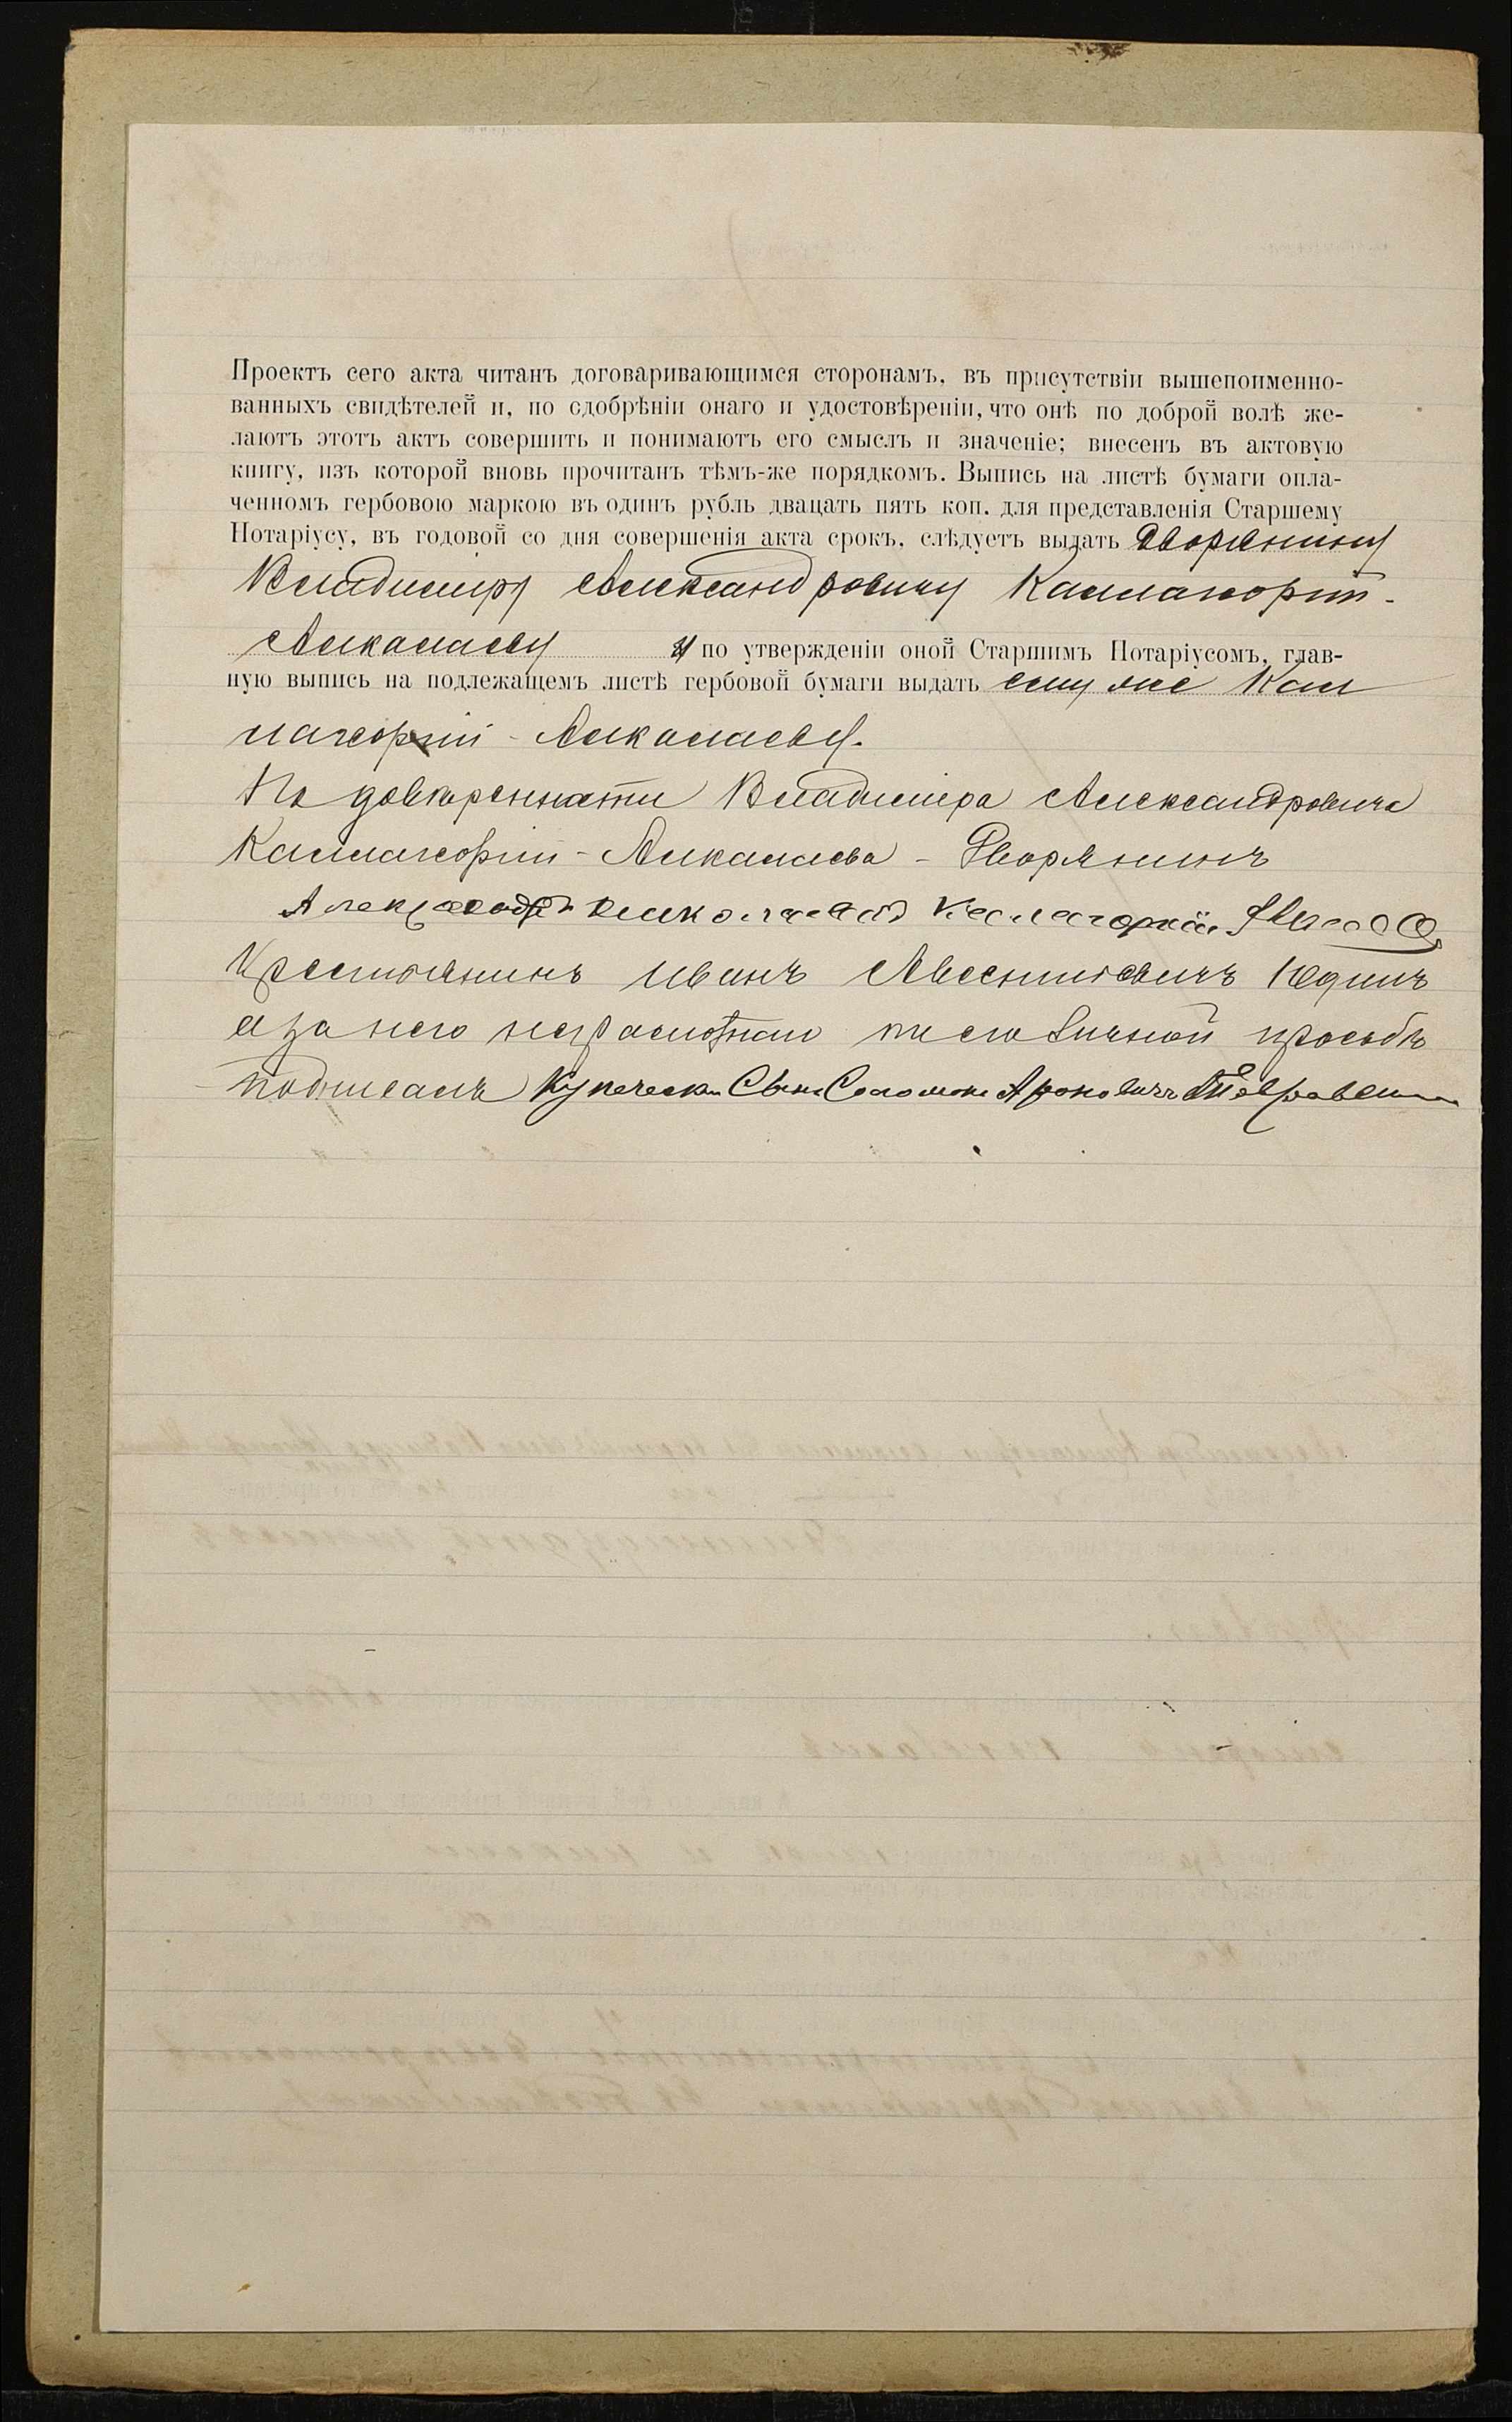 Проектъ сего акта читанъ договаривающимся сторонамъ, въ присутствіи вышепоименно-
ванныхъ свидѣтелей и, по одобрѣніи онаго и удостовѣреніи, что онѣ по доброй волѣ же-
лаютъ этотъ актъ совершить и понимаютъ его смыслъ и значеніе; внесенъ въ актовую
книгу, изъ которой вновь прочитанъ тѣмъ-же порядкомъ. Выпись на листѣ бумаги опла-
ченномъ гербовою маркою въ одинъ рубль двацать пять коп. для представленія Старшему
Нотаріусу, въ годовой со дня совершенія акта срокъ, слѣдуетъ выдать Дворянину
Владиміру Александровичу
и по утвержденіи оной Старшимъ Нотаріусомъ, глав-
ную выпись на подлежащемъ листѣ гербовой бумаги выдать ему же
По довѣренности Владиміра Александровича
Дворянинъ
Александръ
Крестьянинъ Иванъ Авксентіевичъ Юдинъ
а за него неграмотнаго по его личной просьбѣ
подписалъ Купеческ. Сынъ Соломонъ Ароновичъ